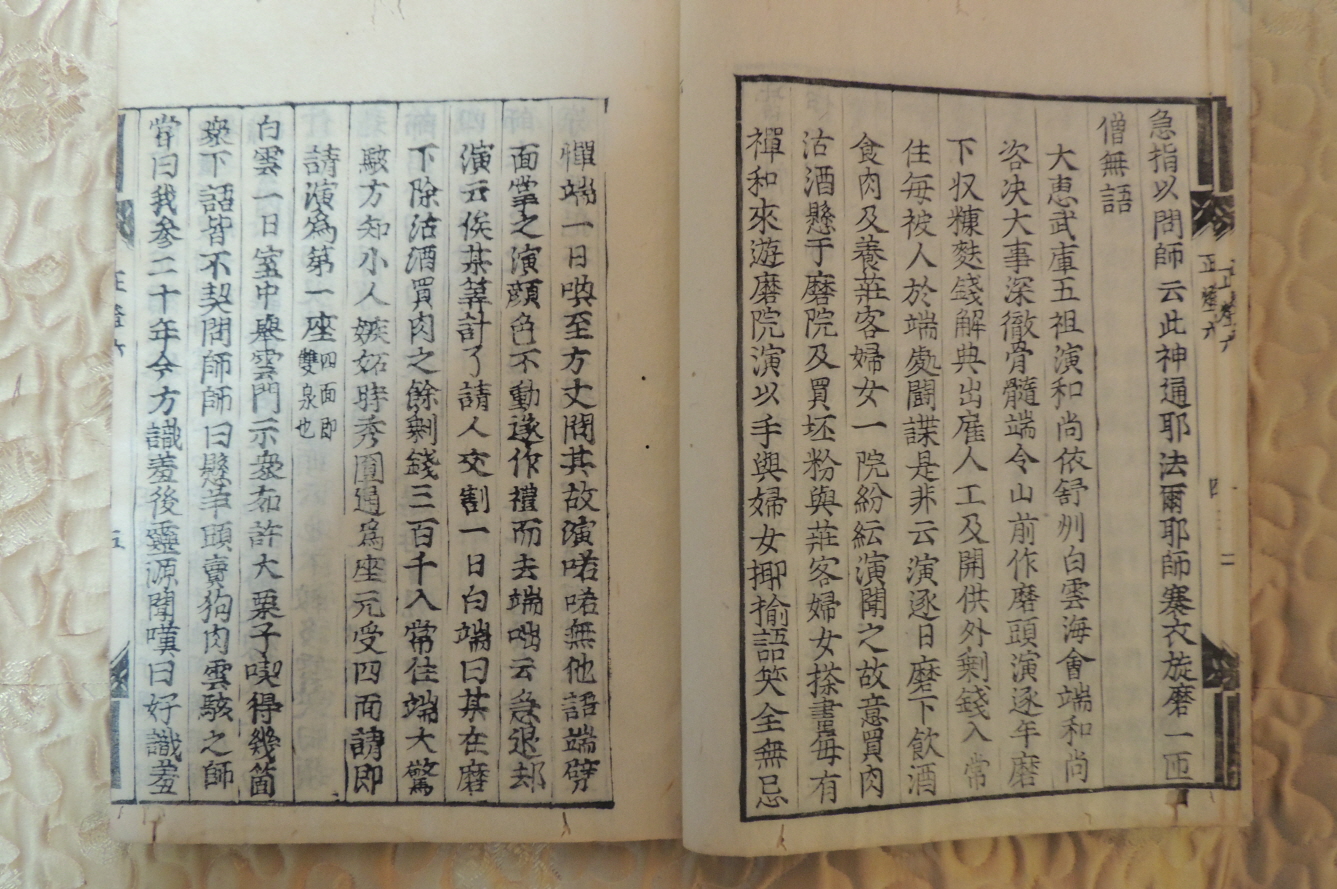 急指以問師云此神通耶法爾耶師寨衣旋磨一匝
僧無語
大惠武庫五祖演和尚依舒州白雲海會端和尚
咨决大事深徹骨髓端令山前作磨頭演逐年磨
下収糠麩錢解典出雇人工及開供外剩錢入常
住每被人於端處鬪諜是非云演逐日磨下飲酒
食肉及養莊客婦女一院紛紜演聞之故意買肉
沽酒懸于磨院及買坯粉與莊客婦女搽畫每有
禪和來遊磨院演以手與婦女揶揄語笑全無忌
憚端一日喚至方丈問其故演喏喏無他語端劈
面掌之演顔色不動遂作禮而去端咄云急退却
演云俟某筭計了請人交割一日白端曰某在磨
下除沽酒買肉之餘剩錢三百千入常住端大驚
駭方知小人嫉妬時秀圓通爲座元受四面請即
請演爲第一座四面即雙泉也
白雲一日室中擧雲門示衆如許大栗子喫得幾箇
衆下語皆不契問師師曰懸羊頭賣狗肉雲駭之師
甞曰我參二十年今方識羞後靈源聞嘆曰好識羞
正燈六
四
五